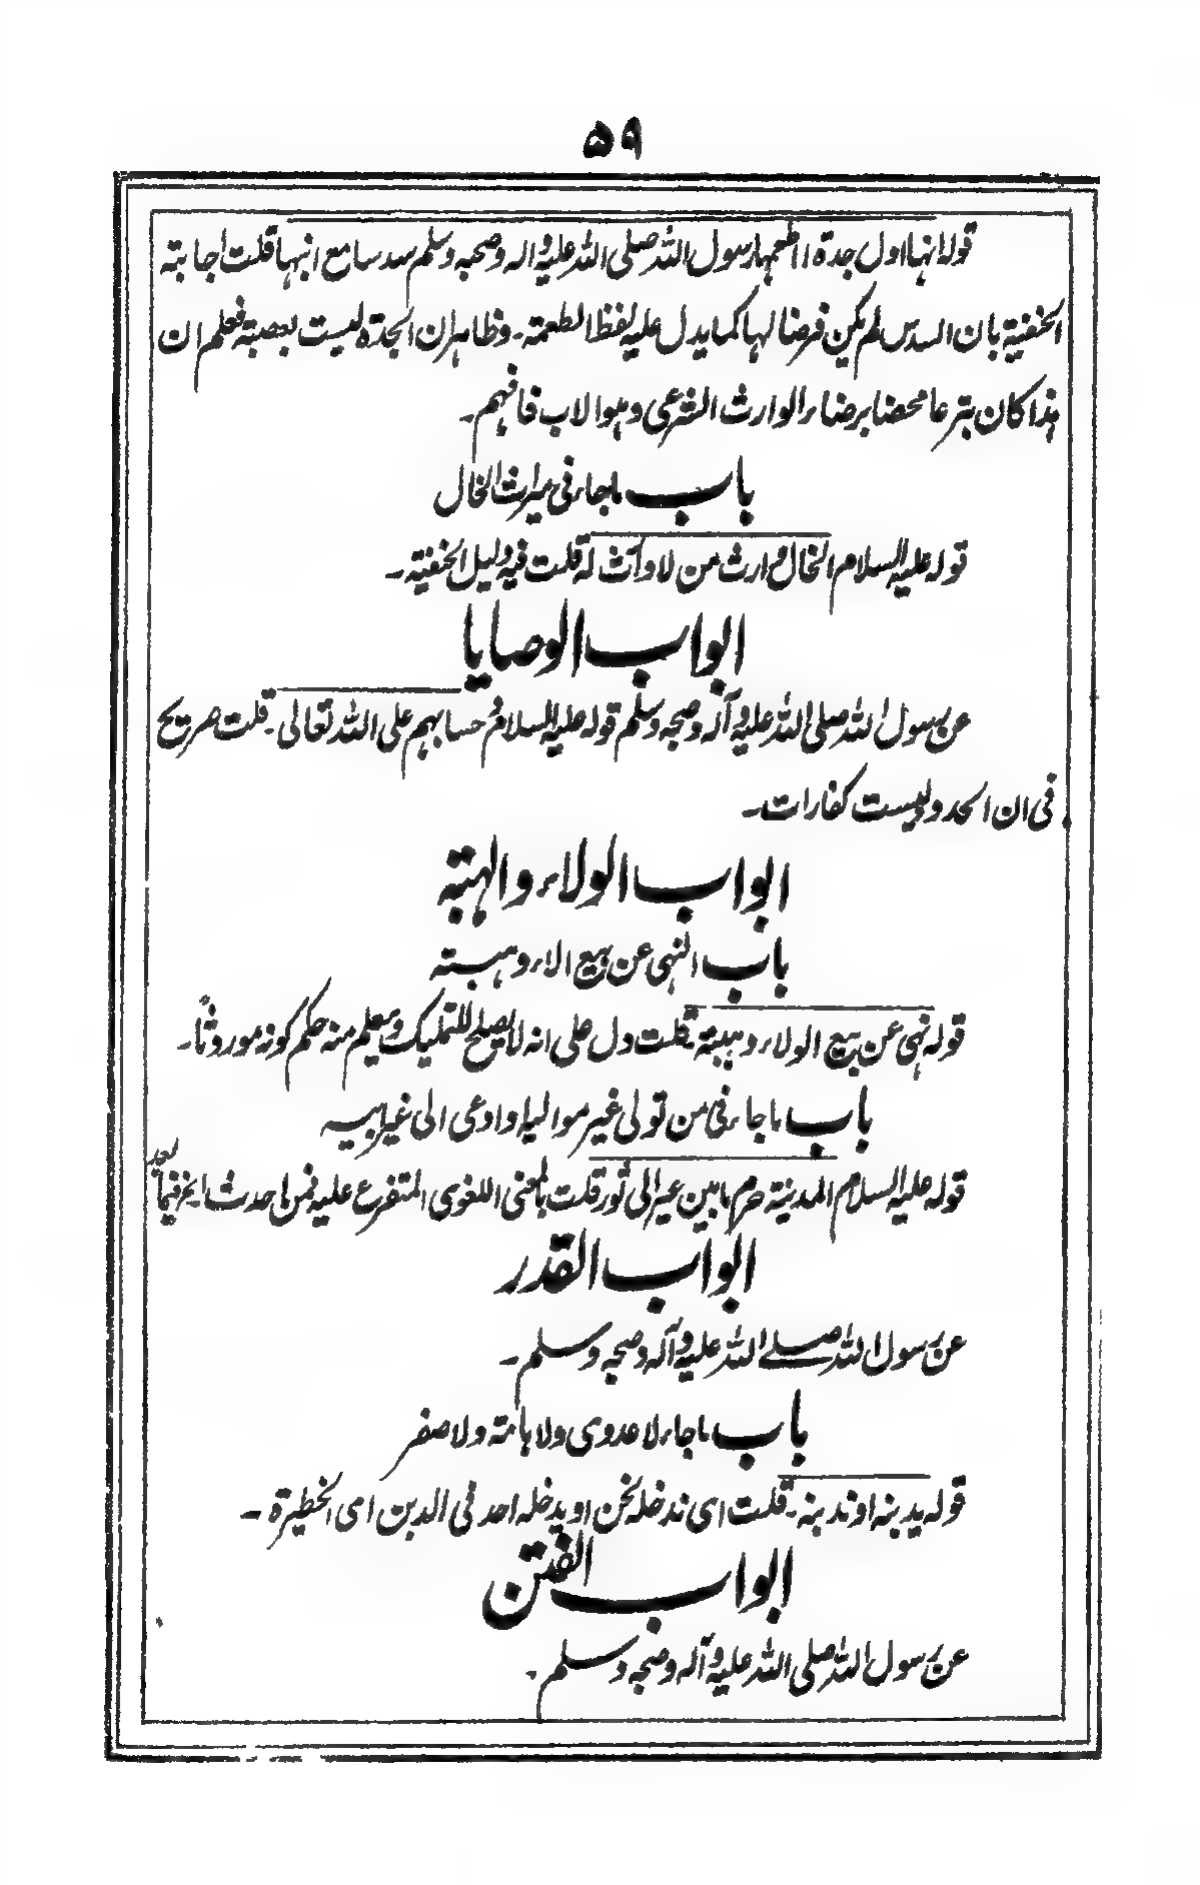 ۵۹
قولہ انہا اول جدۃ اطعمہا رسول اللہ صلی اللہ علیہ والہ وصحبہ وسلم سدسا مع ابنہا قلت اجابتہ
الحنفیۃ بان السدس لم یکن فرضا لہا کما یدل علیہ لفظ الطعمۃ۔ وظاہر ان الجدۃ لیست بعصبۃ فعلم ان
ہذا کان تبرعا محضا برضاء الوارث الشرعی وہو الاب فافہم۔
باب ماجاء فی میراث الخال
قولہ علیہ السلام الخال وارث من لا وارث لہ قلت فیہ دلیل الحنفیۃ۔
ابواب الوصایا
عن رسول اللہ صلی اللہ علیہ وآلہ وصحبہ وسلم قولہ علیہ السلام وحسابہم علی اللہ تعالی۔ قلت صریح
فی ان الحدود لیست کفارات۔
ابواب الولاء والہبتہ
باب النہی عن بیع الاء وہبتہ
قولہ نہی عن بیع الولاء وہبتہ قلت دل علی انہ لا یصلح للتملیک ویعلم منہ حکم کونہ موروثاً۔
باب ماجاء فی من تولی غیر موالیہ او ادعی الی غیر ابیہ
قولہ علیہ السلام المدینۃ حرم ما بین عیر الی ثور قلت بالمعنی اللغوی المتفرع علیہ فمن احدث
ابواب القدر
عن رسول اللہ صلے اللہ علیہ وآلہ وصحبہ وسلم۔
باب ماجاء لا عدوی ولا ہامۃ ولا صفر
قولہ یدبنہ او ندبنہ۔ قلت ای ندخلہ نحن او یدخلہ احد فی الدبن ای الخطیرۃ۔
ابواب الفتن
عن رسول اللہ صلی اللہ علیہ وآلہ وصحبہ وسلم۔